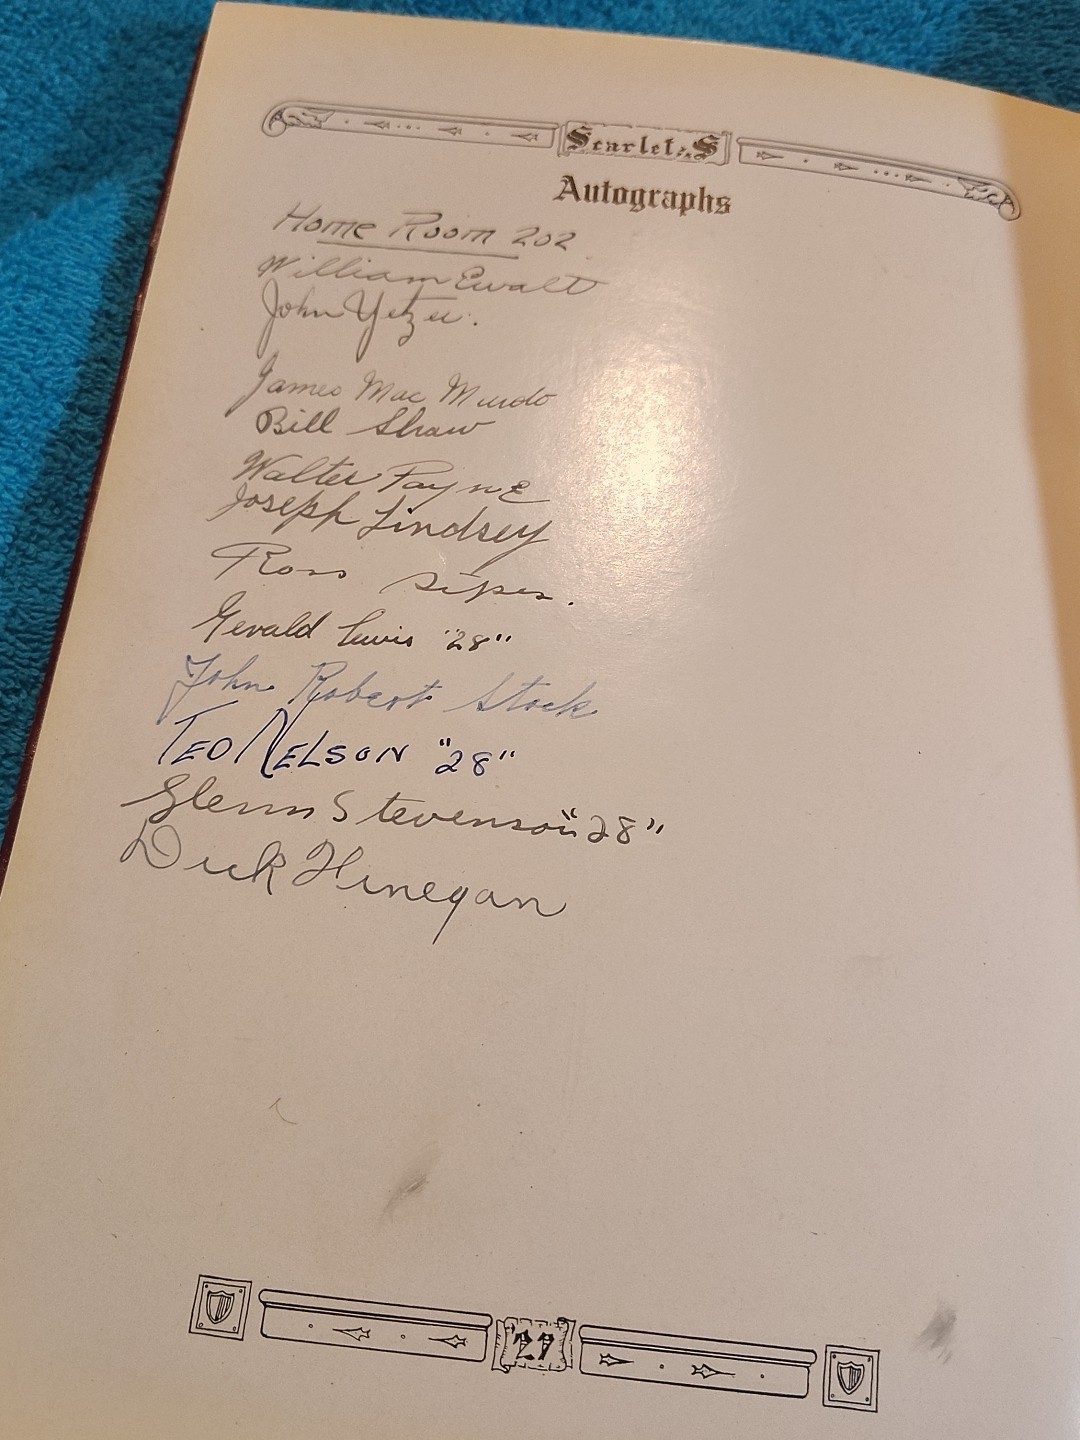 Scarlet S
Autographs
Home Room 202
William Ewalt
John Yetzer.
James Mac Murdo
Bill Shaw
Walter Payne
Joseph Lindsey
Ross Sipes.
Gerald Lewis "28"
John Robert Stock
TED NELSON "28"
Glenn Stevenson "28"
Dick Finegan
27